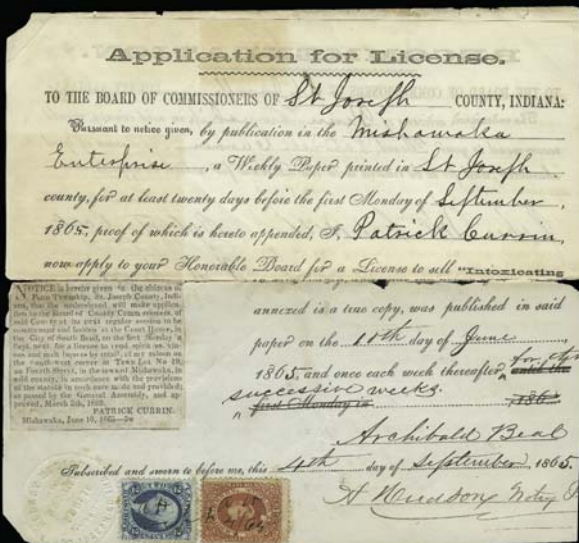 Application for License.
TO THE BOARD OF COMMISSIONERS OF St Joseph COUNTY, INDIANA:
Pursuant to notice given, by publication in the Mishawaka
Enterprise, a Weekly Paper printed in St Joseph
county, for at least twenty days before the first Monday of September,
1865, proof of which is hereto appended, I, Patrick Currin,
now apply to your Honorable Board for a License to sell "Intoxicating
NOTICE is hereby given to the citizens of
Penn Township, St. Joseph County, Indi-
ana, that the undersigned will make applica-
tion to the Board of County Commissioners, of
said County at its next regular session to be
commenced and holden at the Court House, in
the City of South Bend, on the first Monday in
Sept. next, for a license to vend spirituous, vin-
ous and malt liquors by retail, at my saloon on
the south-west corner of Town Lot No 19,
on Fourth Street, in the town of Mishawaka, in
said county, in accordance with the provisions
of the statute in such case made and provided;
as passed by the General Assembly, and ap-
proved, March 5th, 1859.
PATRICK CURRIN.
Mishawaka, June 10, 1865
annexed is a true copy, was published in said
paper on the 10th day of June,
1865, and once each week thereafter, for
until the
successive weeks.
first Monday in 186
Archibald Beal
Subscribed and sworn to before me, this 4th day of September, 1865.
Hudson, Notry P